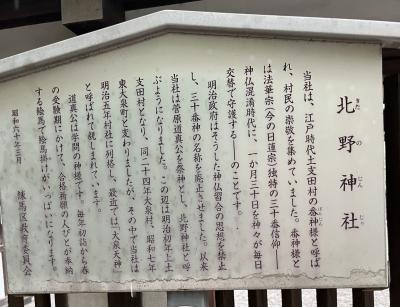 北野神社
きたのじんじゃ
当社は、江戸時代土支田村の番神様と呼ば
れ、村民の崇敬を集めていました。番神様と
は法華宗（今の日蓮宗）独特の三十番信仰――
神仏混淆時代に、一か月三十日を神々が毎日
交替で守護する――のことです。
明治政府はそうした神仏習合の思想を禁止
し、三十番神の名称を廃止させました。以来
当社は菅原道真公を祭神とし、北野神社と呼
ぶようになりました。この辺は明治初年上土
支田村となり、同二十四年大泉村、昭和七年
東大泉町と変わりましたが、その中で当社は
明治五年村社に列格し、最近では「大泉天神」
と呼ばれて親しまれています。
道真公は学問の神様です。毎年初詣から春
の受験期にかけて、合格祈願の人びとが奉納
する絵馬で絵馬掛けがいっぱいになります。
昭和六十年三月
練馬区教育委員会